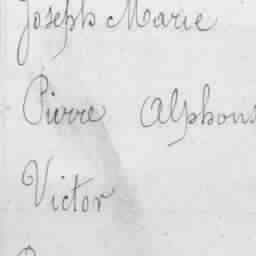 Joseph Marie
Pierre Alphons
Victor